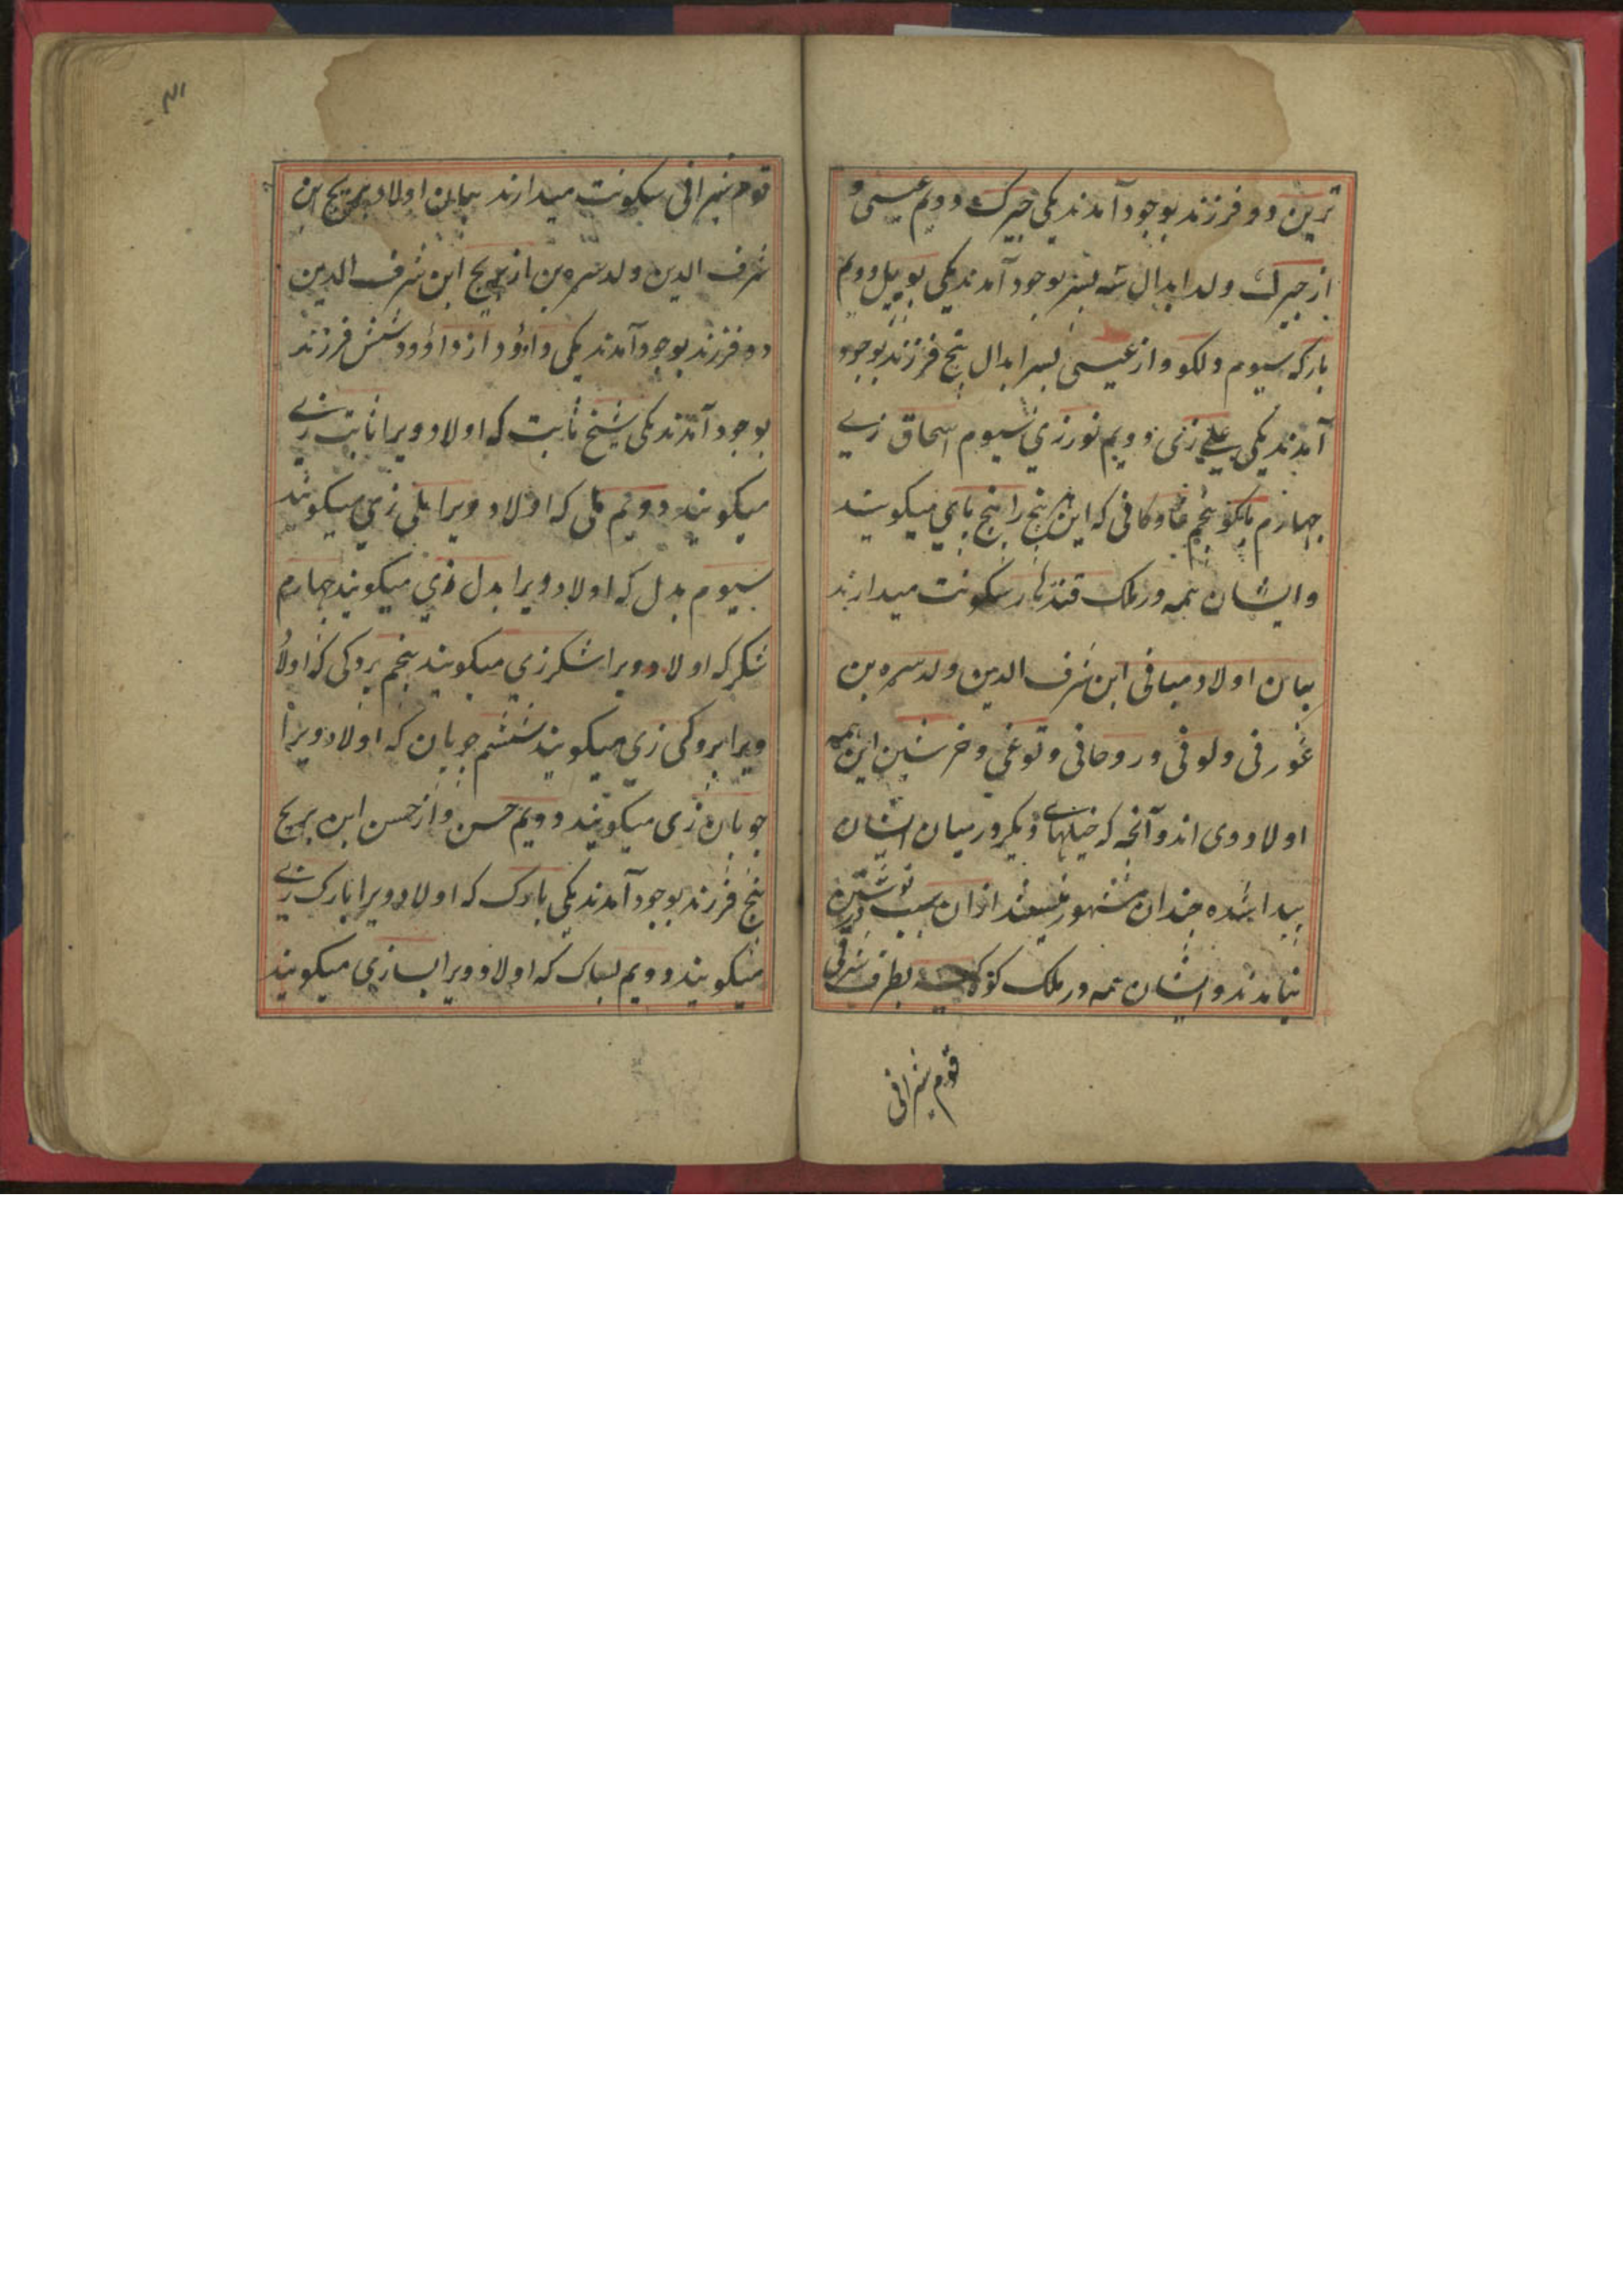 ترین دو فرزند بوجود آمدند یکی جیرک دویم عیسی و
از جیرک ولد ابدال سه پسر بوجود آمدند یکی پوپل دویم
بارک سیوم ولکو و از عیسی پسر ابدال پنج فرزند بوجود
آمدند یکی علی زی دویم نورزی سیوم اسحاق زی
چهارم پنجم که این پنج را پنج پای میکویند
و ایشان همه در ملک قندهار سکونت میدارند
بیان اولاد میانی ابن شرف الدین ولد سره بن
غورنی و لونی و روحانی و توغی و خرشین این همه
اولاد وی اند و آنچه که خیلهای دیکر در میان ایشان
پیدا شده چندان مشهور نیستند ازان سبب در نوشتن
نیامدند و ایشان همه در ملک بطرف شرقی
قوم شیرانی
۳۱
قوم شیرانی سکونت میدارند بیان اولاد بریج ابن
شرف الدین ولد سره بن از بریج ابن شرف الدین
دو فرزند بوجود آمدند یکی داؤد از داؤد شش فرزند
بوجود آمدند یکی شیخ ثابت که اولاد ویرا ثابت زی
میکویند دویم بلی که اولاد ویرا بلی زی میکویند
سیوم بدل که اولاد ویرا بدل زی میکویند چهارم
شکر که اولاد ویرا شکرزی میکویند پنجم بروکی که اولاد
ویرا بروکی زی میکویند ششم چوپان که اولاد ویرا
چوپان زی میکویند دویم حسن و از حسن ابن بریج
پنج فرزند بوجود آمدند یکی بارک که اولاد ویرا بارک زی
میکویند دویم بساک که اولاد ویرا بسازی میکویند